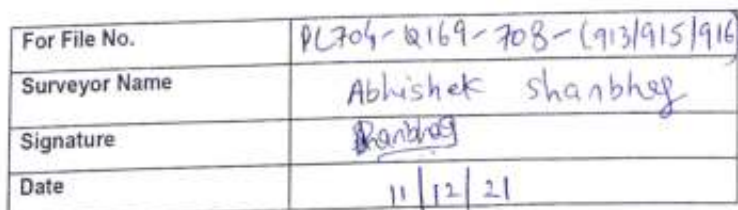 For File No. PL704-Q169-708-(913/915/916
Surveyor Name Abhishek Shanbhag
Signature Shanbhag
Date 11/12/21